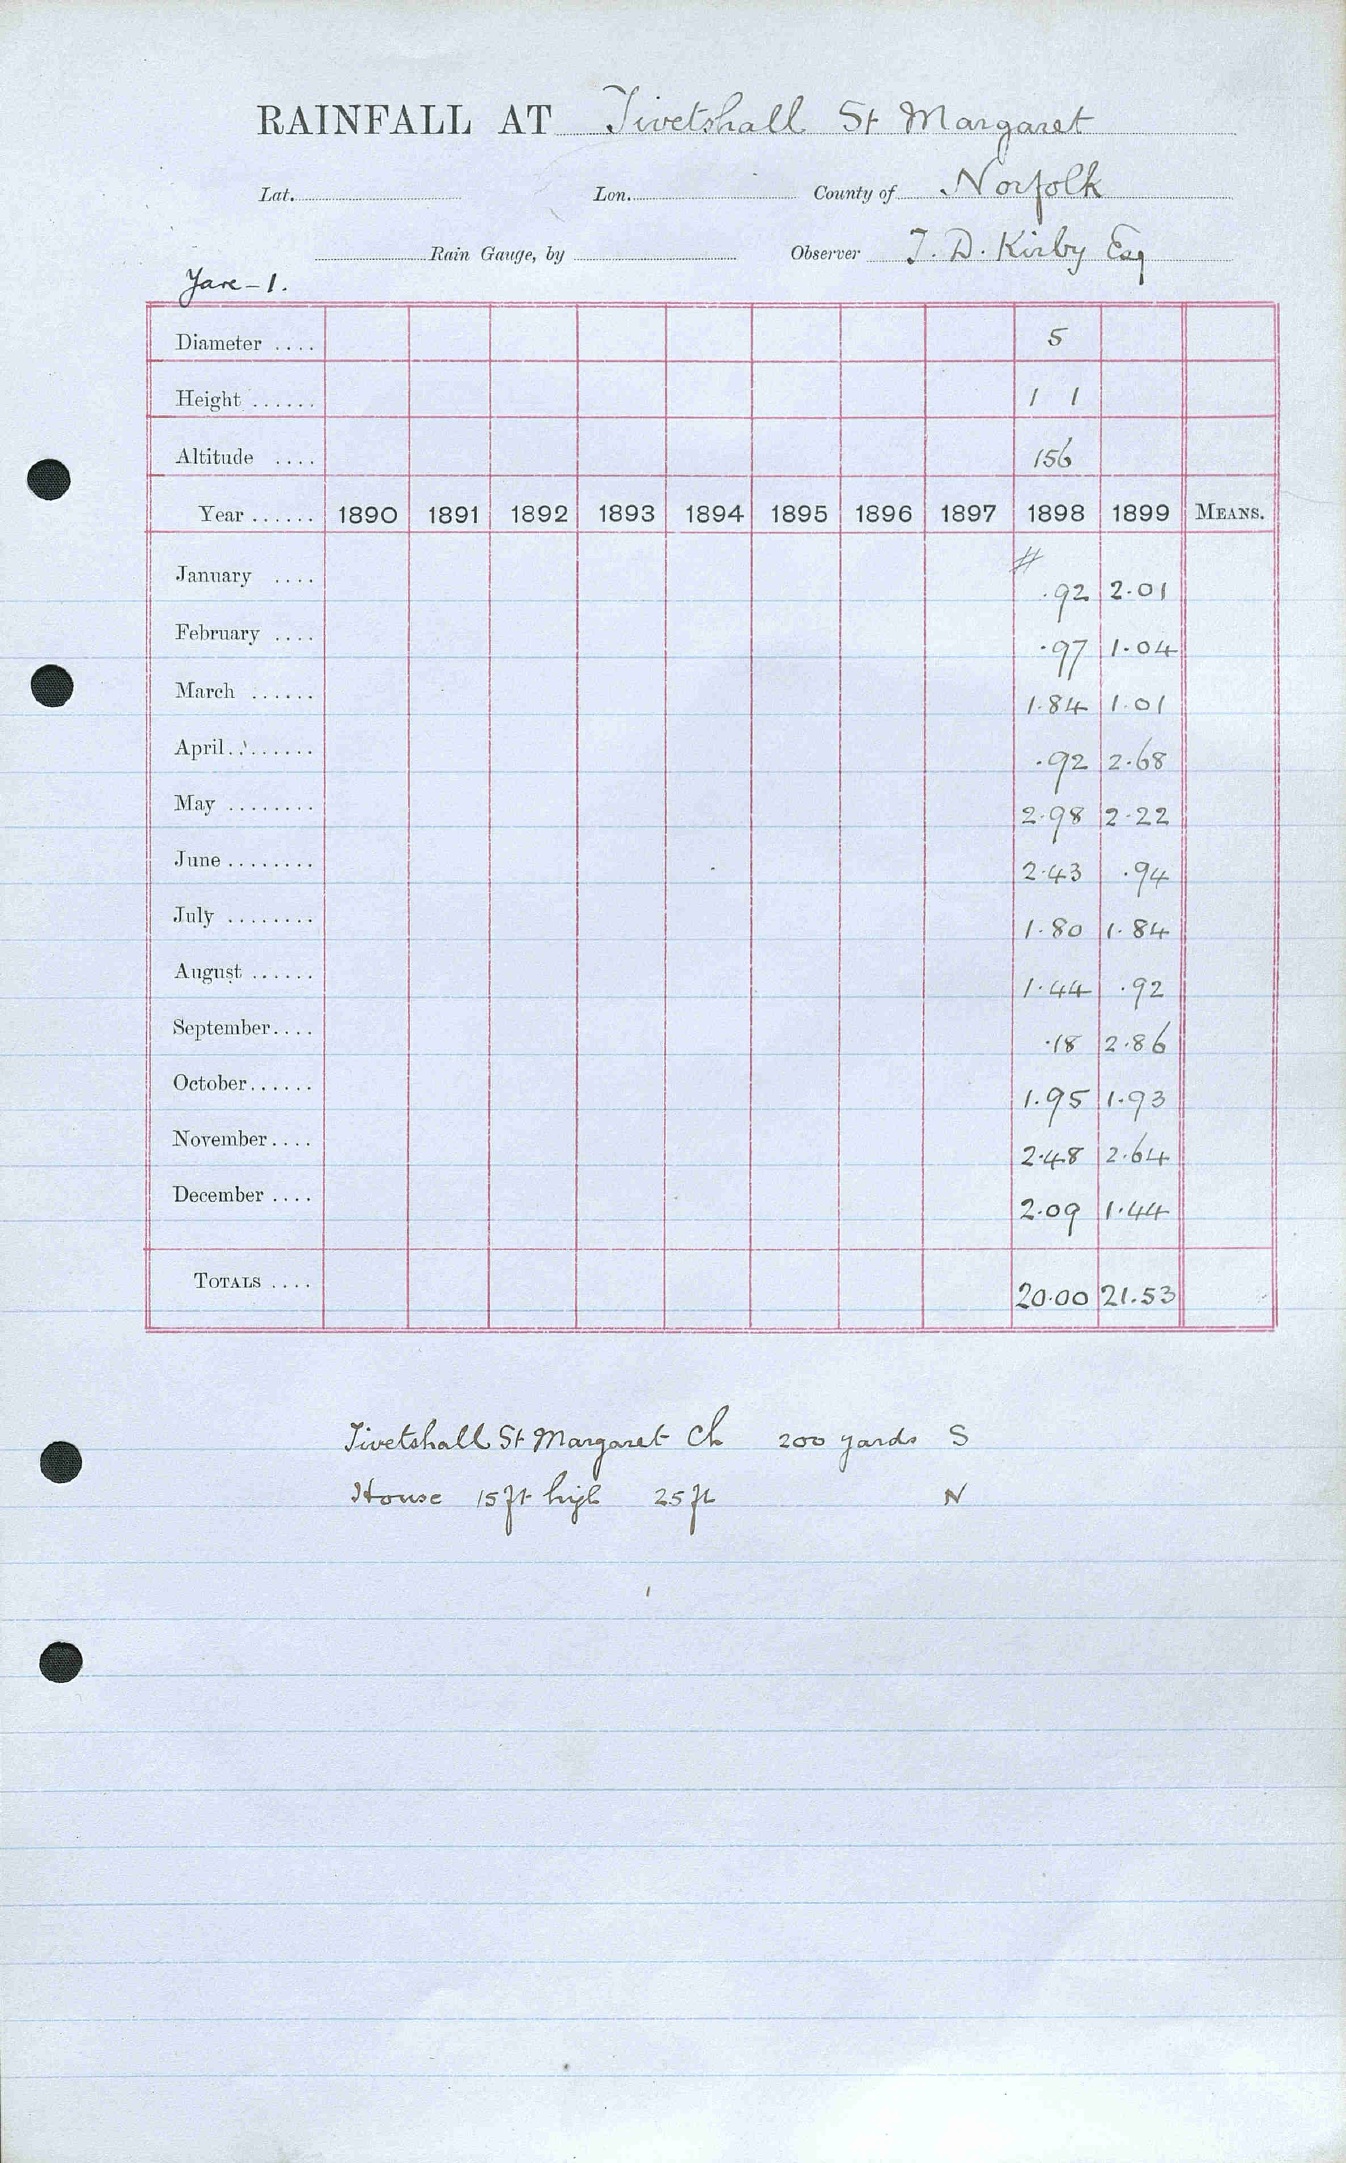 RAINFALL AT Tivetshall St Margaret
Lat. Lon. County of Norfolk
Rain Gauge, by Observer T. D. Kirby Esq
Yare - 1.
Diameter .... 5
Height ...... 1 1
Altitude .... 156
Year ...... 1890 1891 1892 1893 1894 1895 1896 1897 1898 1899 MEANS.
#
January .... .92 2.01
February .... .97 1.04
March ...... 1.84 1.01
April ....... .92 2.68
May ........ 2.98 2.22
June ........ 2.43 .94
July ........ 1.80 1.84
August ...... 1.44 .92
September.... .18 2.86
October...... 1.95 1.93
November.... 2.48 2.64
December .... 2.09 1.44
TOTALS .... 20.00 21.53
Tivetshall St Margaret Ch 200 yards S
House 15 ft high 25 ft N